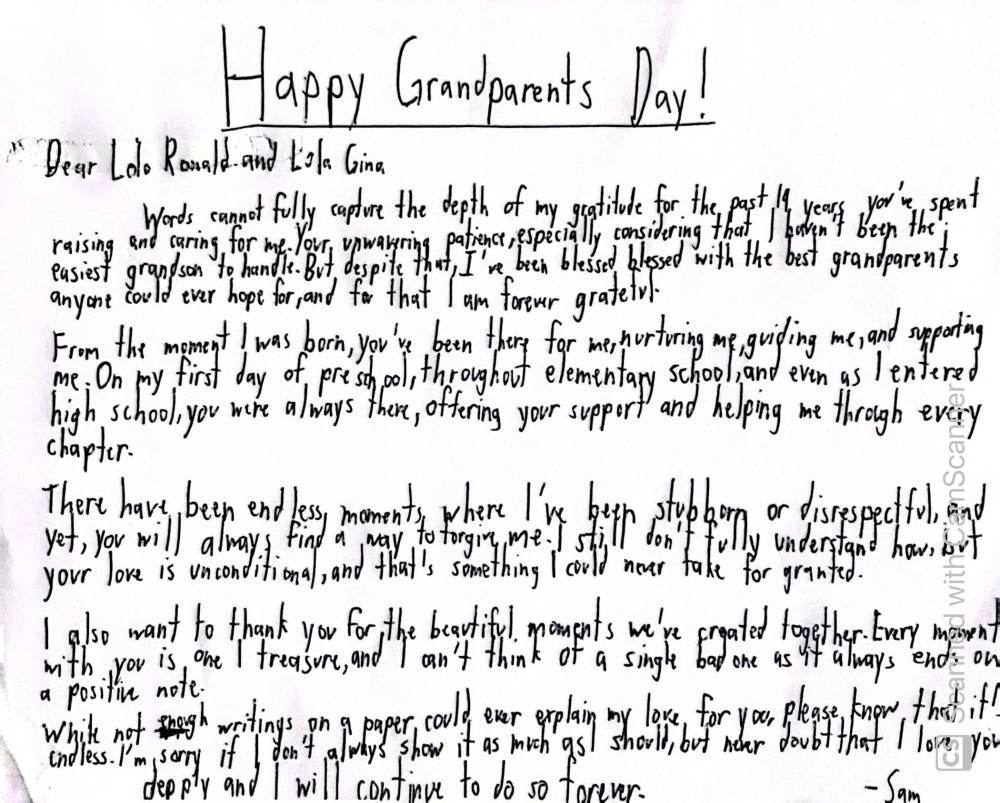 Happy Grandparents Day!
Dear Lolo Ronald and Lola Gina
Words cannot fully capture the depth of my gratitude for the past 19 years you've spent
raising and caring for me. Your unwavering patience, especially considering that I haven't been the
easiest grandson to handle. But despite that, I've been blessed blessed with the best grandparents
anyone could ever hope for, and for that I am forever grateful.
From the moment I was born, you've been there for me, nurturing me, guiding me, and supporting
me. On my first day of preschool, throughout elementary school, and even as I entered
high school, you were always there, offering your support and helping me through every
chapter.
There have been endless moments where I've been stubborn or disrespectful, and
yet, you will always find a way to forgive me. I still don't fully understand how, but
your love is unconditional, and that's something I could never take for granted.
I also want to thank you for the beautiful moments we've created together. Every moment
with you is one I treasure, and I can't think of a single bad one as it always ends on
a positive note.
While not writings on a paper could ever explain my love for you, please know that it's
endless. I'm sorry if I don't always show it as much as I should, but never doubt that I love you
depply and I will continue to do so forever.
- Sam
CS Scanned with CamScanner